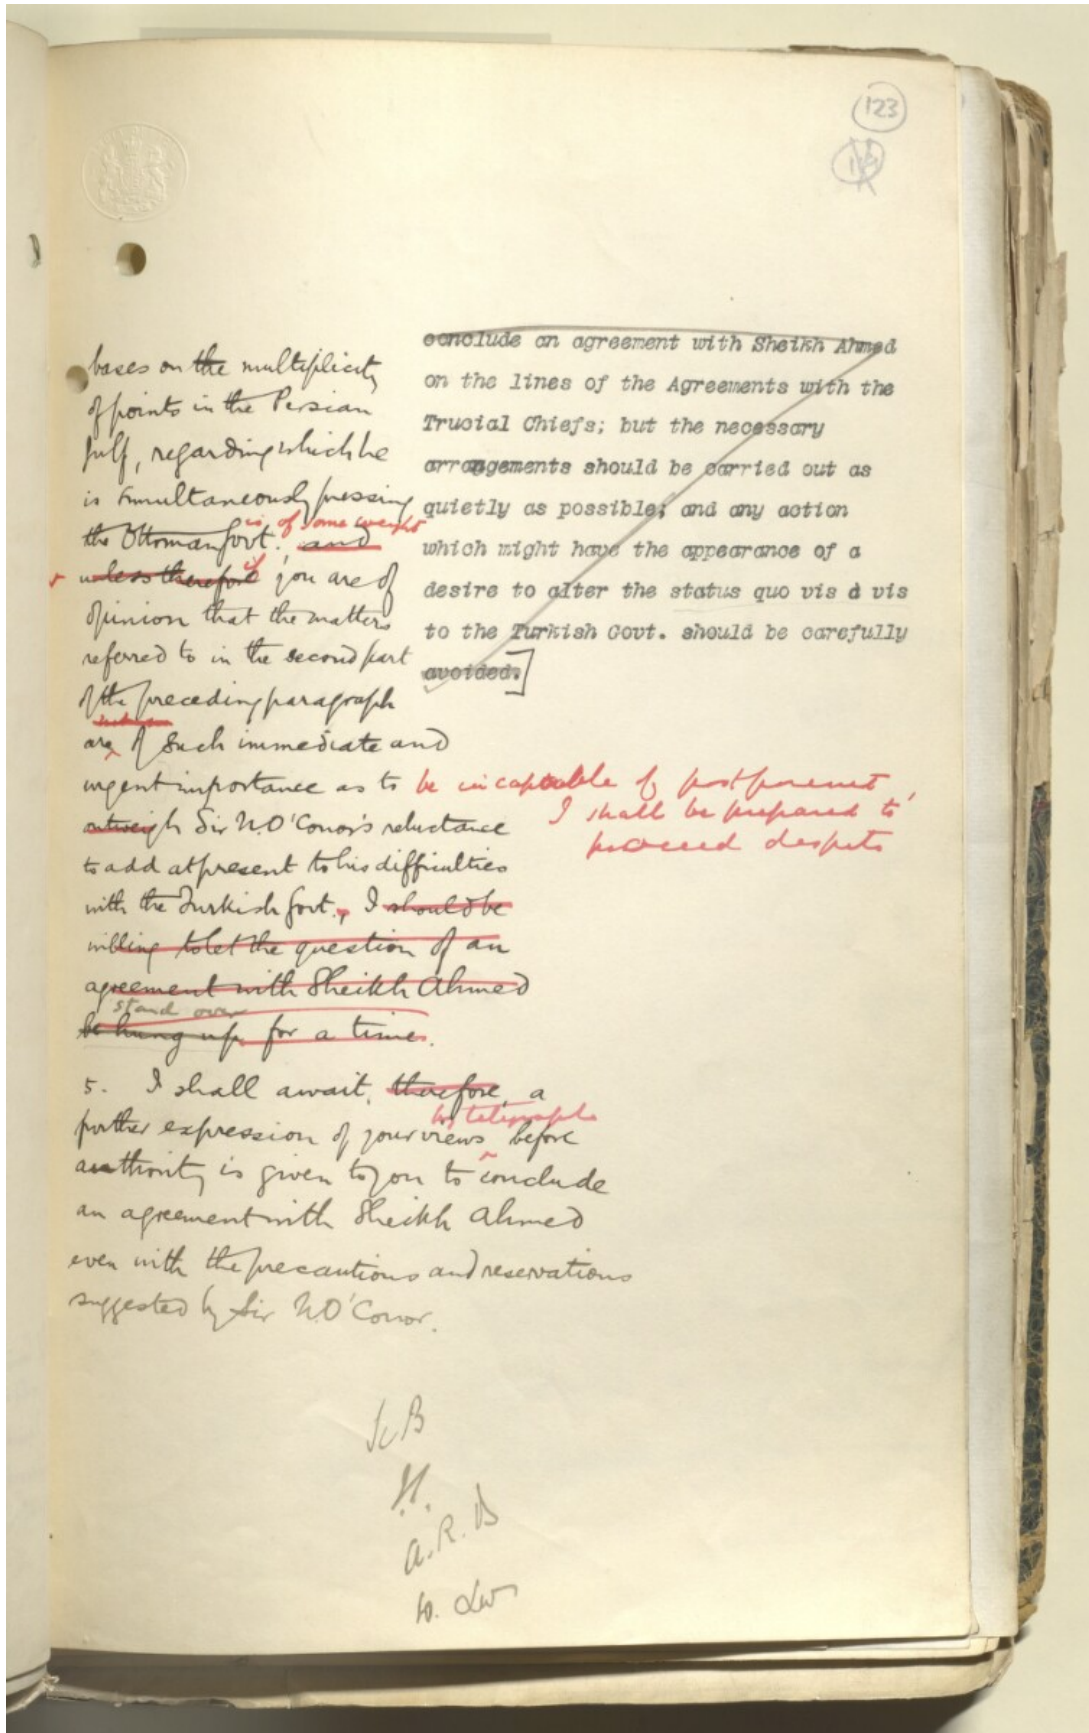 123
conclude an agreement with Sheikh Ahmed
on the lines of the Agreements with the
Trucial Chiefs; but the necessary
arrangements should be carried out as
quietly as possible; and any action
which might have the appearance of a
desire to alter the status quo vis à vis
to the Turkish Govt. should be carefully
avoided.]
bases on the multiplicity
of points in the Persian
Gulf, regarding which he
is simultaneously pressing
is of some weight
the Ottoman Govt. ; and
unless therefore if you are of
opinion that the matters
referred to in the second part
of the preceding paragraph
not
are of such immediate and
urgent importance as to be incapable of postponement,
I shall be prepared to
proceed despite
outweigh Sir N. O'Conor's reluctance
to add at present to his difficulties
with the Turkish Govt., I should be
willing to let the question of an
agreement with Sheikh Ahmed
stand over
be hung up for a time.
5. I shall await, therefore, a
by telegraph
further expression of your views before
authority is given to you to conclude
an agreement with Sheikh Ahmed
even with the precautions and reservations
suggested by Sir N. O'Conor.
H.
A.R.D